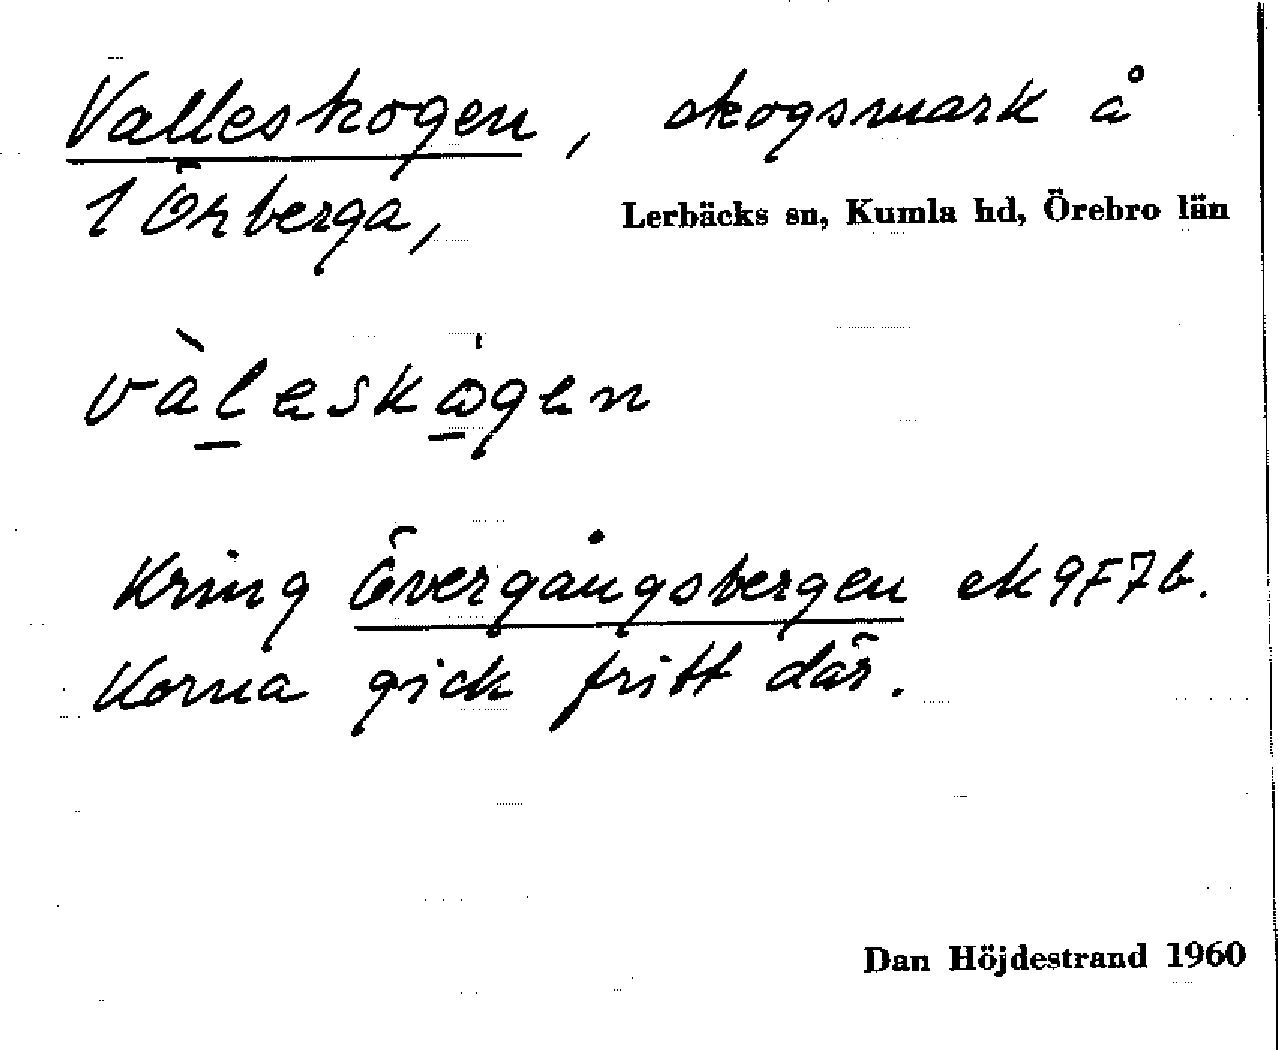 Valleskogen, skogsmark å
1 Örberga, Lerbäcks sn, Kumla hd, Örebro län
vàl̲eskò̲gen
Kring Övergångsbergen ek 9F7b.
Korna gick fritt där.
Dan Höjdestrand 1960